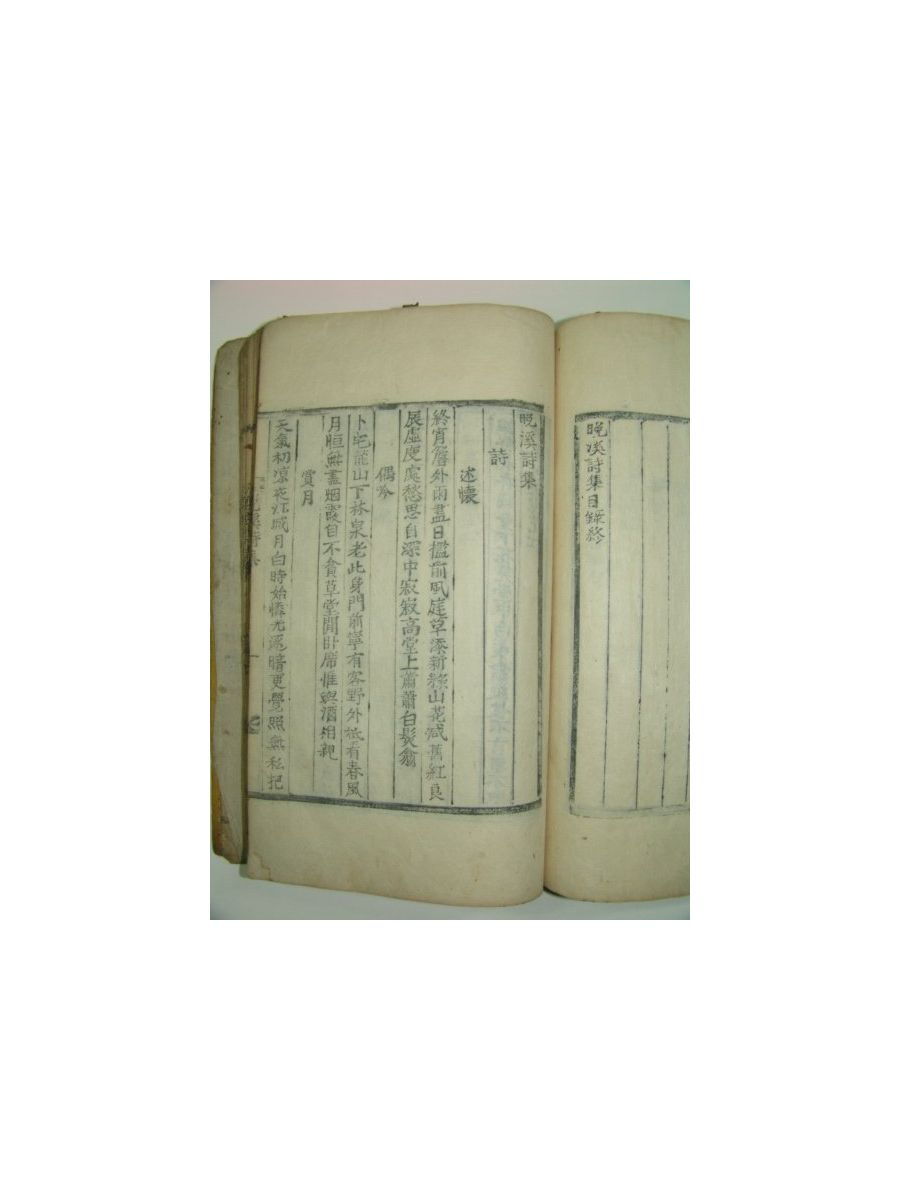 晩溪詩集目錄終
晩溪詩集
詩
述懷
終宵簷外雨盡日檻前風庭草添新綠山花減舊紅良
辰虛度處愁思自深中寂寂高堂上蕭蕭白髮翁
偶吟
卜宅龍山下林泉老此身門前寧有客野外秪看春風
月恒無盡烟霞自不貪草堂閒卧席惟與酒相親
賞月
天氣初凉夜江城月白時始憐光遍暗更覺照無私把